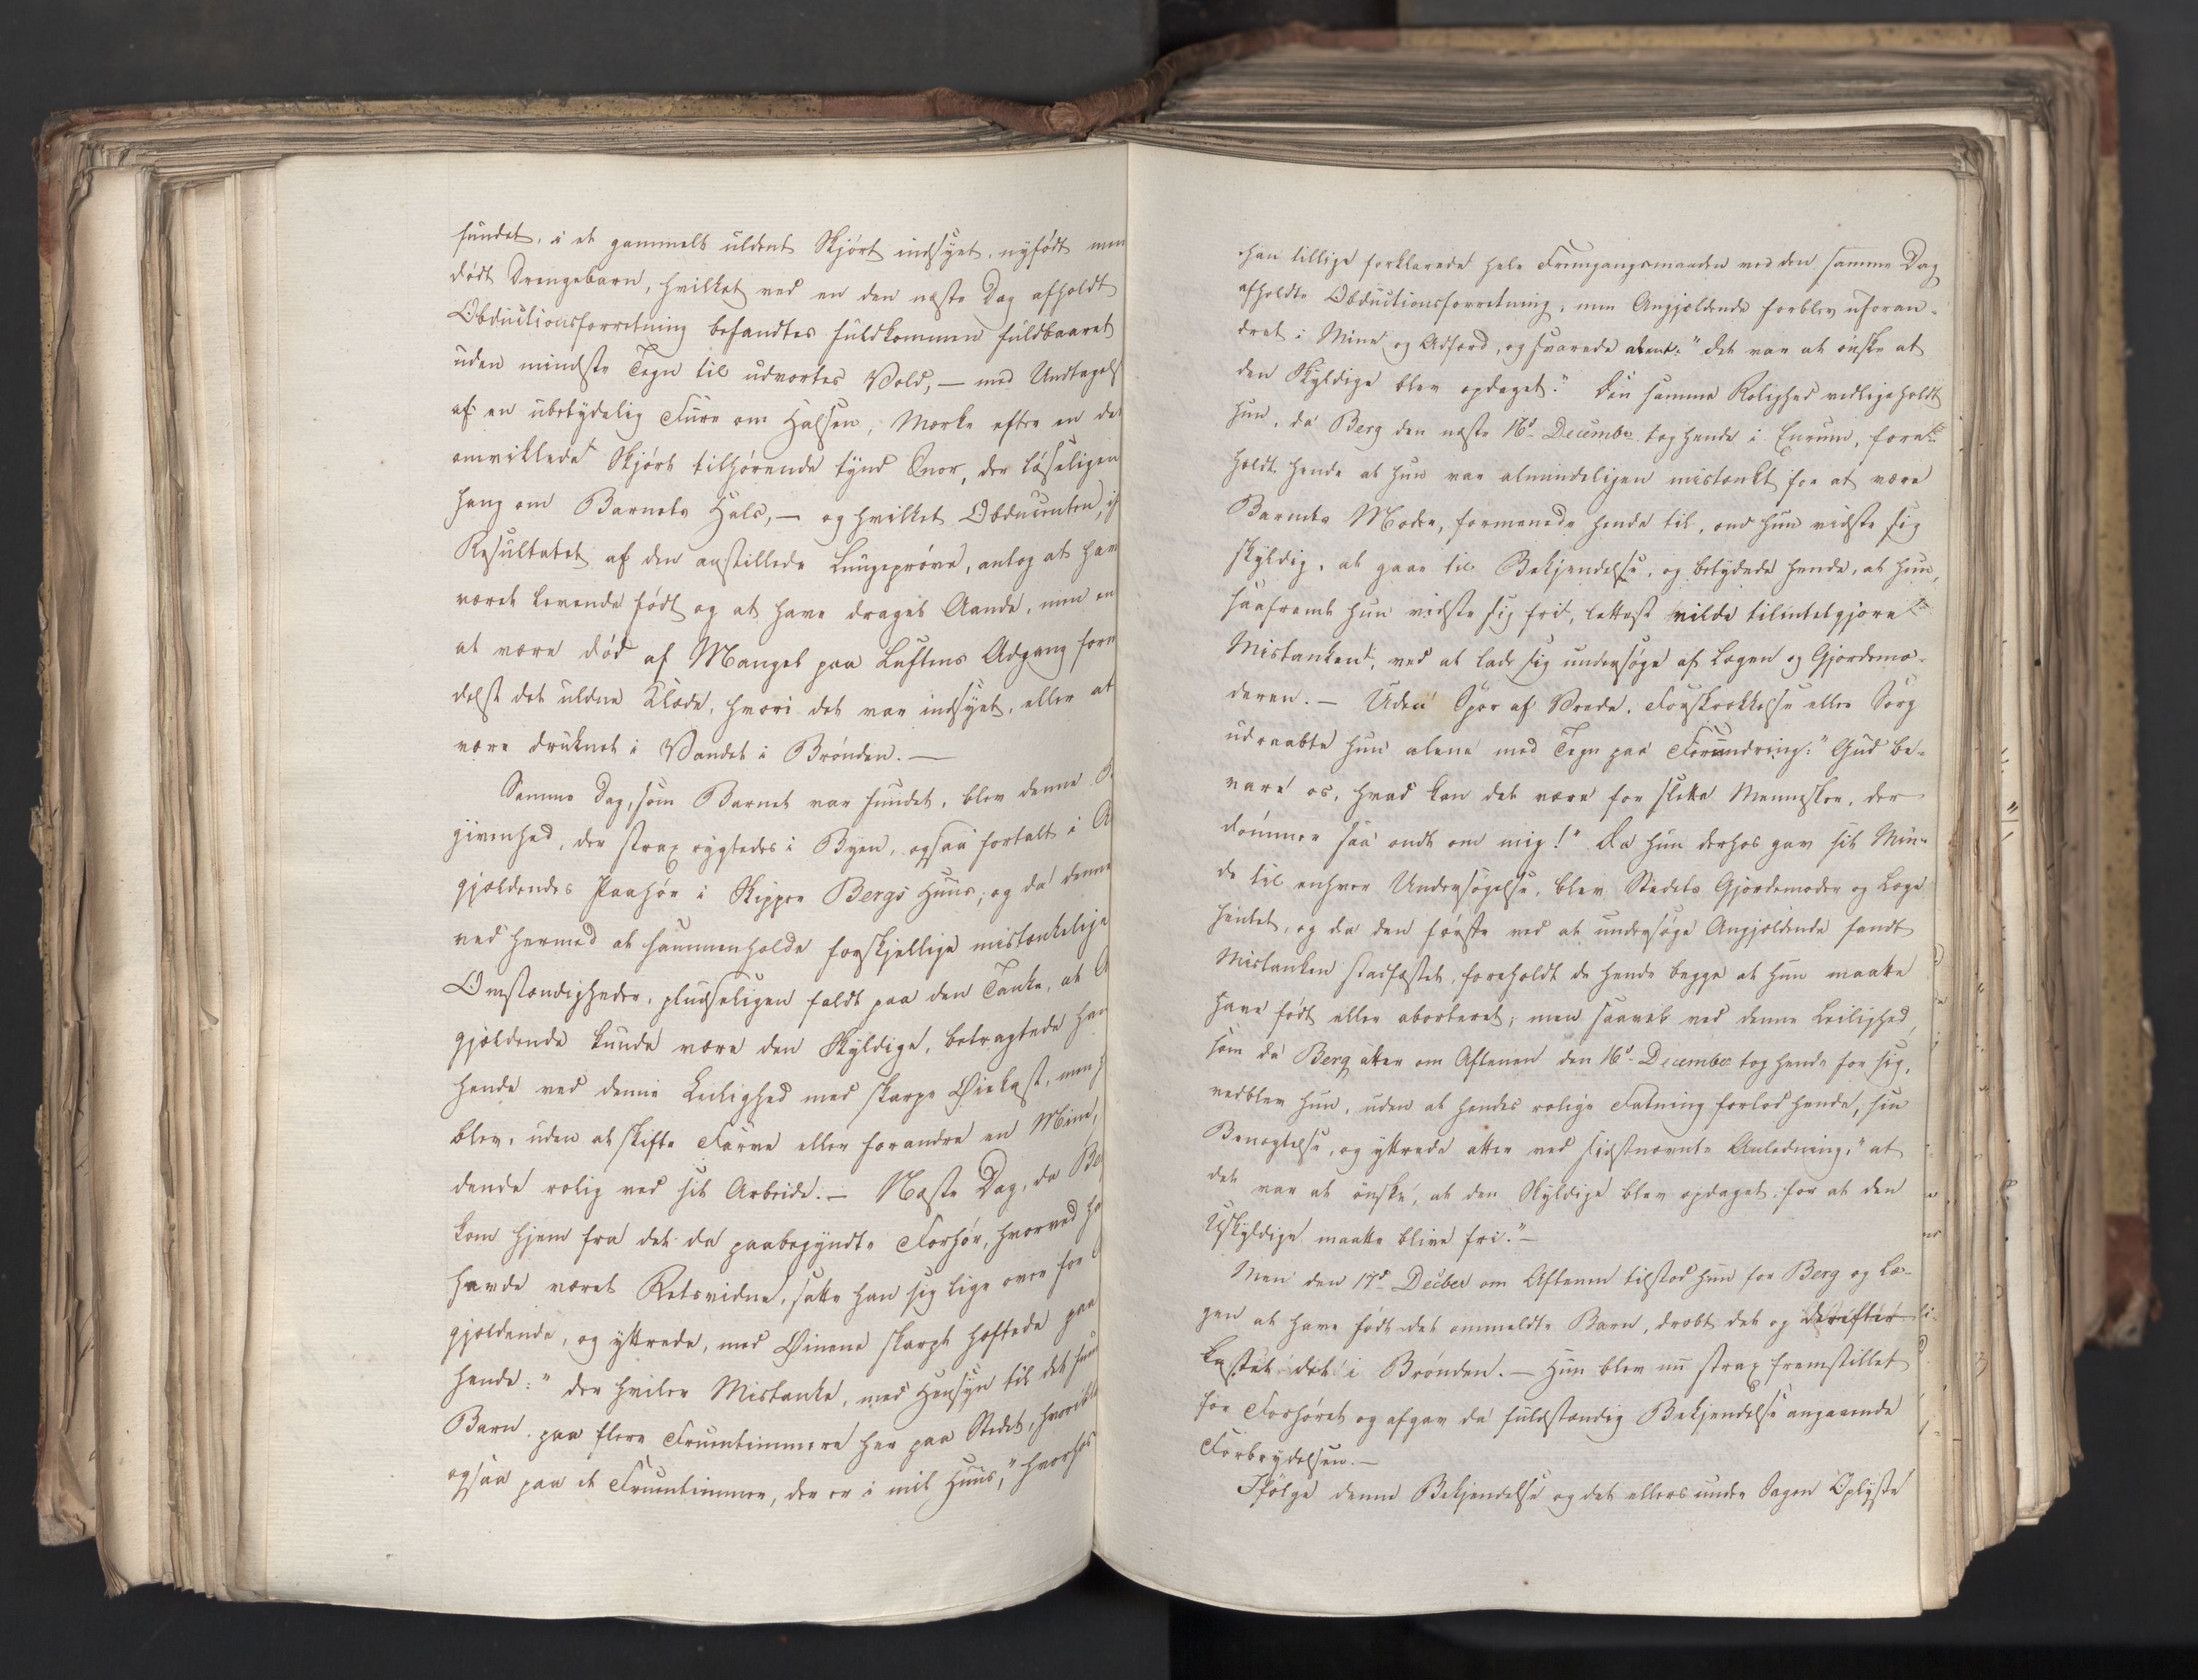 fundet, i et gammelt uldent Skjört indsyet, nyfödt men
dödt Drengebarn, hvilket ved en den næste Dag afholdt
Obductionsforretning befandtes fuldkommen fuldbaaret
uden mindste Tegn til udvortes Vold, — med Undtagelse
af en ubetydelig Fure om Halsen, Mærke efter en det
omviklede Skjört tilhörende tynd Snor, der löseligen
hang om Barnets Hals, — og hvilket Obducenten, if
Resultatet af den anstillede Lungepröve, antog at have
været levende födt og at have draget Aande, men en
at være död af Mangel paa Luftens Adgang form
delst det uldne Klæde, hvori det var indsyet, eller at
være druknet i Vandet i Brönden. —
Samme Dag, som Barnet var fundet, blev denne B
givenhed, der strax rygtedes i Byen, ogsaa fortalt i A
gjældendes Paahör i Skipper Bergs Huus; og da denne
ved hermed at sammenholde forskjellige mistænkelige
Omstændigheder, pludseligen faldt paa den Tanke, at A
gjældende kunde være den Skyldige, betragtede han
hende ved denne Leilighed med skarpe Öiekast, men h
blev, uden at skifte Farve eller forandre en Mine,
dende rolig ved sit Arbeide. — Næste Dag, da Be
kom hjem fra det da paabegyndte Forhör, hvorved ha
havde været Retsvidne, satte han sig lige over for
gjældende, og yttrede, med Öinene skarpt hæftede paa
hende: "der hviler Mistanke, med Hensyn til det fun
Barn, paa flere Fruentimmere her paa Stedet, hvoribl
ogsaa paa et Fruentimmer, der er i mit Huus," hvorhos
han tillige forklarede hele Fremgangsmaaden ved den samme Dag
afholdte Obductionsforretning; men Angjældende forblev uforan-
dret i Mine og Adfærd, og svarede alene: "det var at önske at
den Skyldige blev opdaget." Den samme Rolighed vedligeholdt
hun, da Berg den næste 16d December tog hende i Eenrum, fore-
holdt hende at hun var almindeligen mistænkt for at være
Barnets Moder, formanede hende til, om hun vidste sig
skyldig, at gaae til Bekjendelse, og betydede hende, at hun,
saafremt hun vidste sig fri, lettest vilde tilintetgjöre
Mistanken, ved at lade sig undersöge af Lægen og Gjordemo-
deren. — Uden Spor af Vrede, Forskrækkelse eller Sorg
udraabte hun alene med Tegn paa Forundring: "Gud be-
vare os, hvad kan det være for slette Mennesker, der
dömmer saa ondt om mig!" Da hun derhos gav sit Min-
de til enhver Undersögelse, blev Stedets Gjordemoder og Læge
hentet, og da den förste ved at undersöge Angjældende fandt
Mistanken stadfæstet, foreholdt de hende begge at hun maatte
have födt eller aborteret; men saavel ved denne Leilighed,
som da Berg atter om Aftenen den 16d December tog hende for sig,
vedblev hun, uden at hendes rolige Fatning forlod hende, sin
Benægtelse, og yttrede atter ved sidstnævnte Anledning, "at
det var at önske, at den Skyldige blev opdaget, for at den
Uskyldige maatte blive fri." —
Men den 17d Decbr om Aftenen tilstod hun for Berg og Læ-
gen at have födt det ommeldte Barn, dræbt det og derefter
kastet det i Brönden. — Hun blev nu strax fremstillet
for Forhöret og afgav da fuldstændig Bekjendelse angaaende
Forbrydelsen. —
Ifölge denne Bekjendelse og det ellers under Sagen Oplyste